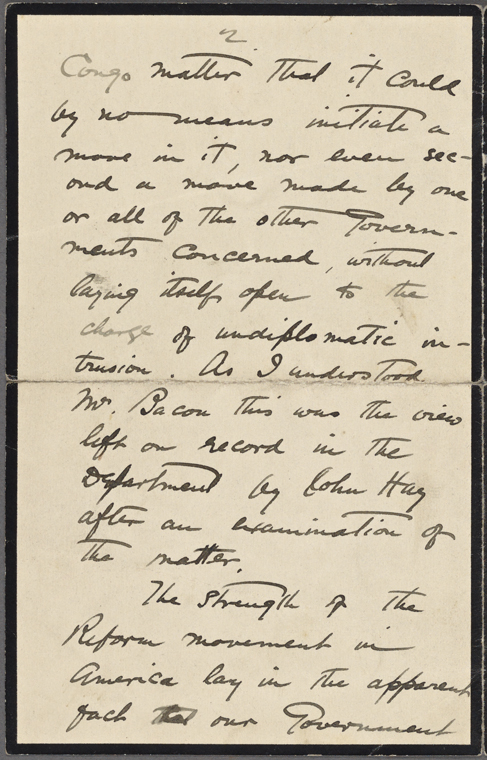 2
Congo matter that it could
by no means initiate a
move in it, nor even sec-
ond a move made by one
or all of the other Govern-
ments concerned, without
laying itself open to the
charge of undiplomatic in-
trusion. As I understood
Mr. Bacon this was the view
left on record in the
Department by John Hay
after an examination of
the matter.
The strength of the
Reform movement in
America lay in the apparent
fact that our Government